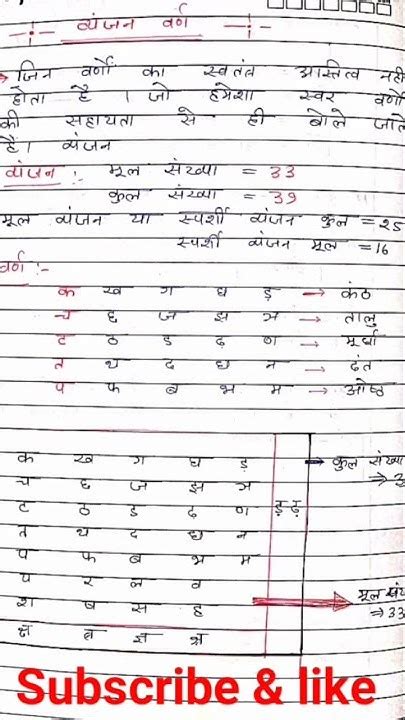 व्यंजन वर्ण
→ जिन वर्णों का स्वतंत्र अस्तित्व नही
होता है । जो हमेशा स्वर वर्णों
की सहायता से ही बोले जाते
है। व्यंजन
व्यंजन :- मूल संख्या = 33
कुल संख्या = 39
मूल व्यंजन या स्पर्शी व्यंजन कुल = 25
स्पर्शी व्यंजन मूल = 16
वर्ण :-
क ख ग घ ड़ → कंठ
च छ ज झ ञ → तालु
ट ठ ड ढ ण → मूर्धा
त थ द ध न → दंत
प फ ब भ म → ओष्ठ
क ख ग घ ड़ → कुल संख्या
च छ ज झ ञ ⇒ 3
ट ठ ड ढ ण ड़ ढ़
त थ द ध न
प फ ब भ म
य र ल व
श ष स ह मूल सं
⇒ 33
क्ष त्र ज्ञ श्र
Subscribe & like